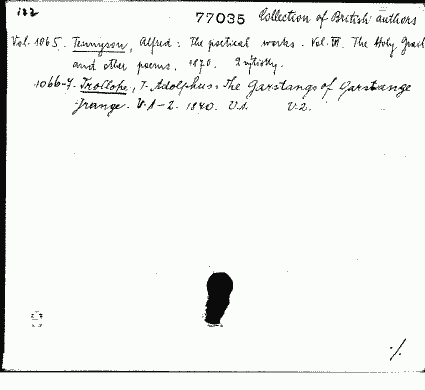 122 77035 Collection of British authors
Vol. 1065. Tennyson, Alfred: The poetical works. Vol. VI. The Holy Grail
and other poems. 1870. 2 výtisky.
1066-7. Trollope, T. Adolphus: The Garstangs of Garstange
Grange. V. 1-2. 1870. V.1. V.2.
./.